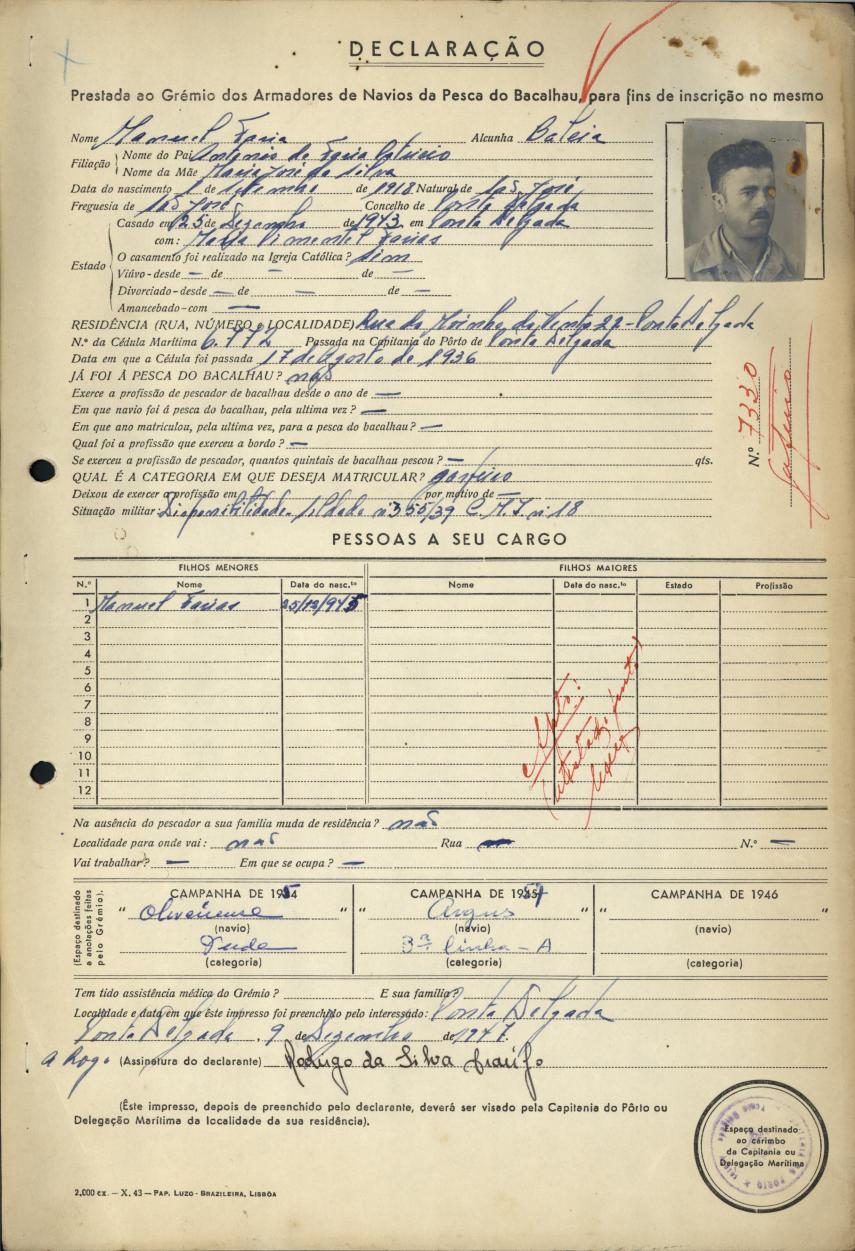 DECLARAÇÃO
Prestada ao Grémio dos Armadores de Navios da Pesca do Bacalhau, para fins de inscrição no mesmo
Nome Manuel Faria Alcunha Bateia
Filiação Nome do Pai António de Faria
Nome da Mãe Maria José da Silva
Data do nascimento 1 de Setembro de 1918 Natural de São José
Freguesia de São José Concelho de Ponta Delgada
Estado
Casado em 25 de Dezembro de 1943 em Ponta Delgada
com: Maria Pimentel Farias
O casamento foi realizado na Igreja Católica? sim
Viúvo - desde — de — de —
Divorciado - desde — de — de —
Amancebado - com —
RESIDÊNCIA (RUA, NÚMERO e LOCALIDADE) Rua do Moinho do Vento 22 - Ponta Delgada
N.º da Cédula Marítima 6.772 Passada na Capitania do Pôrto de Ponta Delgada
Data em que a Cédula foi passada 17 de Agosto de 1936
JÁ FOI Á PESCA DO BACALHAU? não
Exerce a profissão de pescador de bacalhau desde o ano de —
Em que navio foi á pesca do bacalhau, pela ultima vez? —
Em que ano matriculou, pela ultima vez, para a pesca do bacalhau? —
Qual foi a profissão que exerceu a bordo? —
Se exerceu a profissão de pescador, quantos quintais de bacalhau pescou? — qts.
QUAL É A CATEGORIA EM QUE DESEJA MATRICULAR?
Deixou de exercer a profissão em — por motivo de —
Situação militar: Disponibilidade. Soldado nº 355/39 C.M.I. nº 18
N.º 7330
PESSOAS A SEU CARGO
FILHOS MENORES FILHOS MAIORES
N.º Nome Data do nasc.to Nome Data do nasc.to Estado Profissão
1 Manuel Farias 25/12/945
2
3
4
5
6
7
8
9
10
11
12
Na ausência do pescador a sua familia muda de residência? não
Localidade para onde vai: não Rua — N.º —
Vai trabalhar? — Em que se ocupa? —
(Espaço destinado a anotações feitas pelo Grémio).
CAMPANHA DE 1954 CAMPANHA DE 1954 CAMPANHA DE 1946
" Oliveirense " " Argus " " "
(navio) (navio) (navio)
Verde 3ª linha - A
(categoria) (categoria) (categoria)
Tem tido assistência médica do Grémio? E sua família?
Localidade e data em que êste impresso foi preenchido pelo interessado: Ponta Delgada
Ponta Delgada, 9 de Dezembro de 1947.
A Rogo (Assinatura do declarante) Rodrigo da Silva Araújo
(Êste impresso, depois de preenchido pelo declarante, deverá ser visado pela Capitania do Pôrto ou
Delegação Marítima da localidade da sua residência).
Espaço destinado
ao carimbo
da Capitania ou
Delegação Marítima
2,000 cx. — X. 43 — PAP. LUZO - BRAZILEIRA, LISBÔA